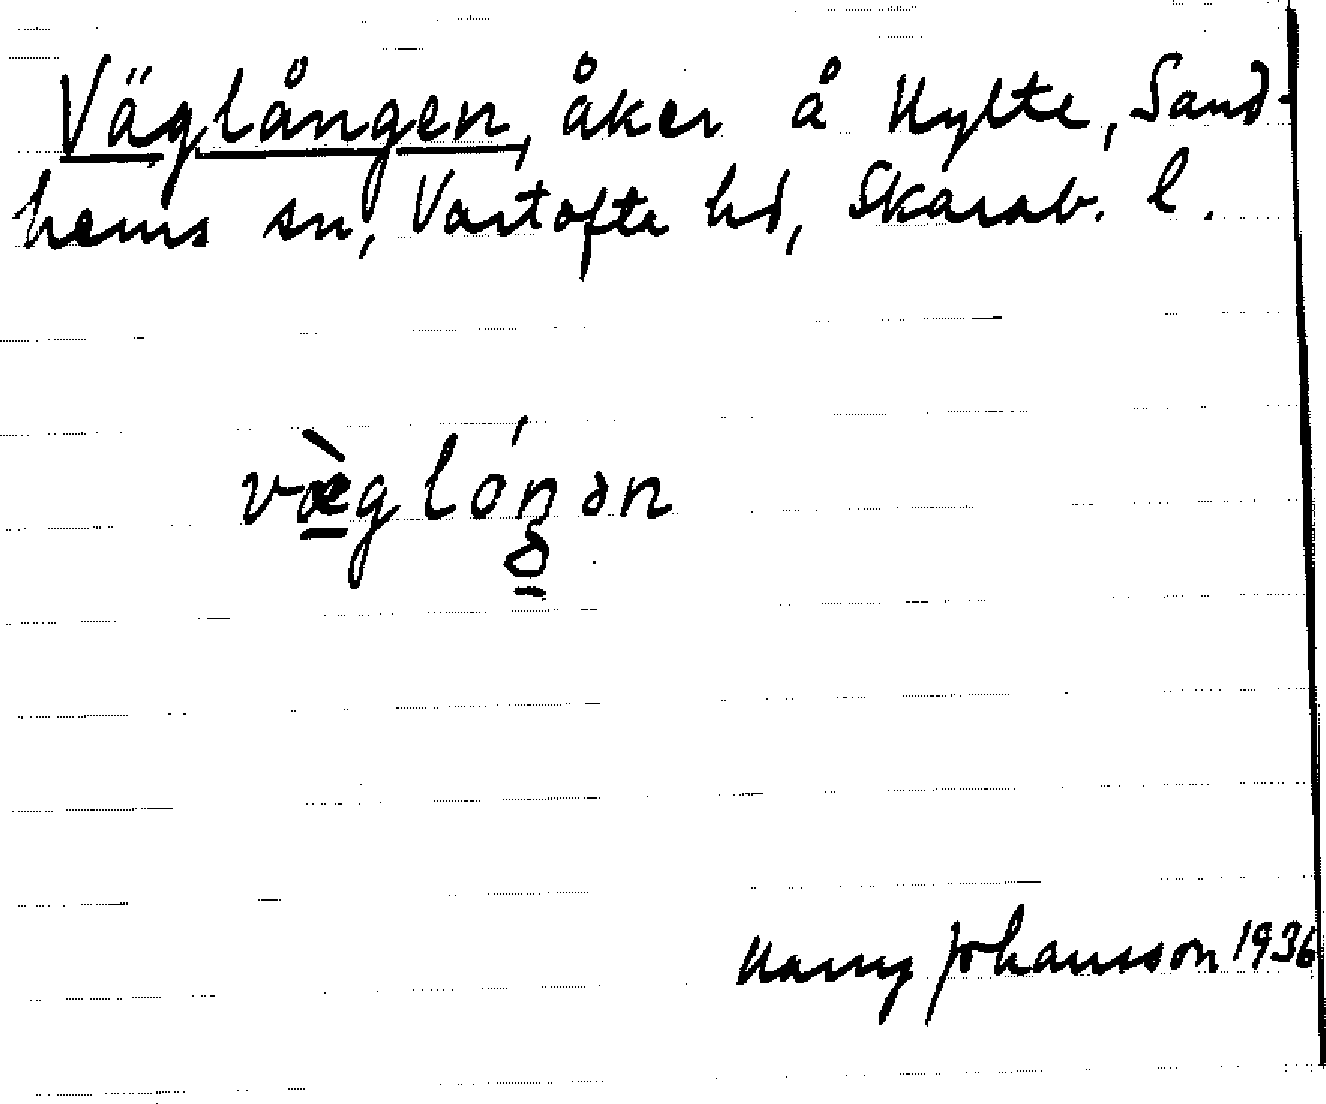 Väglången, åker å Hylte, Sand-
hems sn, Vartofta hd, Skarab. l.
væ̀glóŋən
Harry Johansson 1936